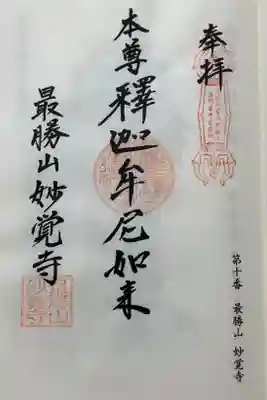 奉拝
本尊釋迦牟尼如来
最勝山妙覚寺
第十番 最勝山 妙覚寺